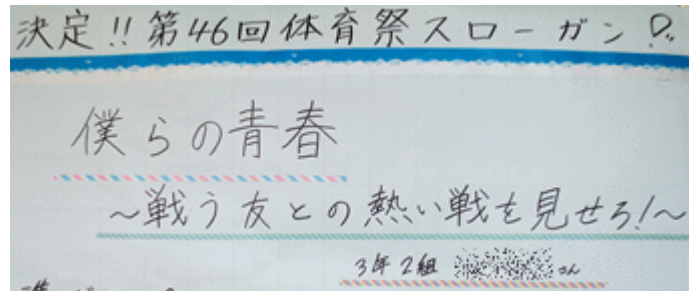 決定!!第46回体育祭スローガン!?
僕らの青春
~戦う友との熱い戦を見せろ!~
3年2組 さん